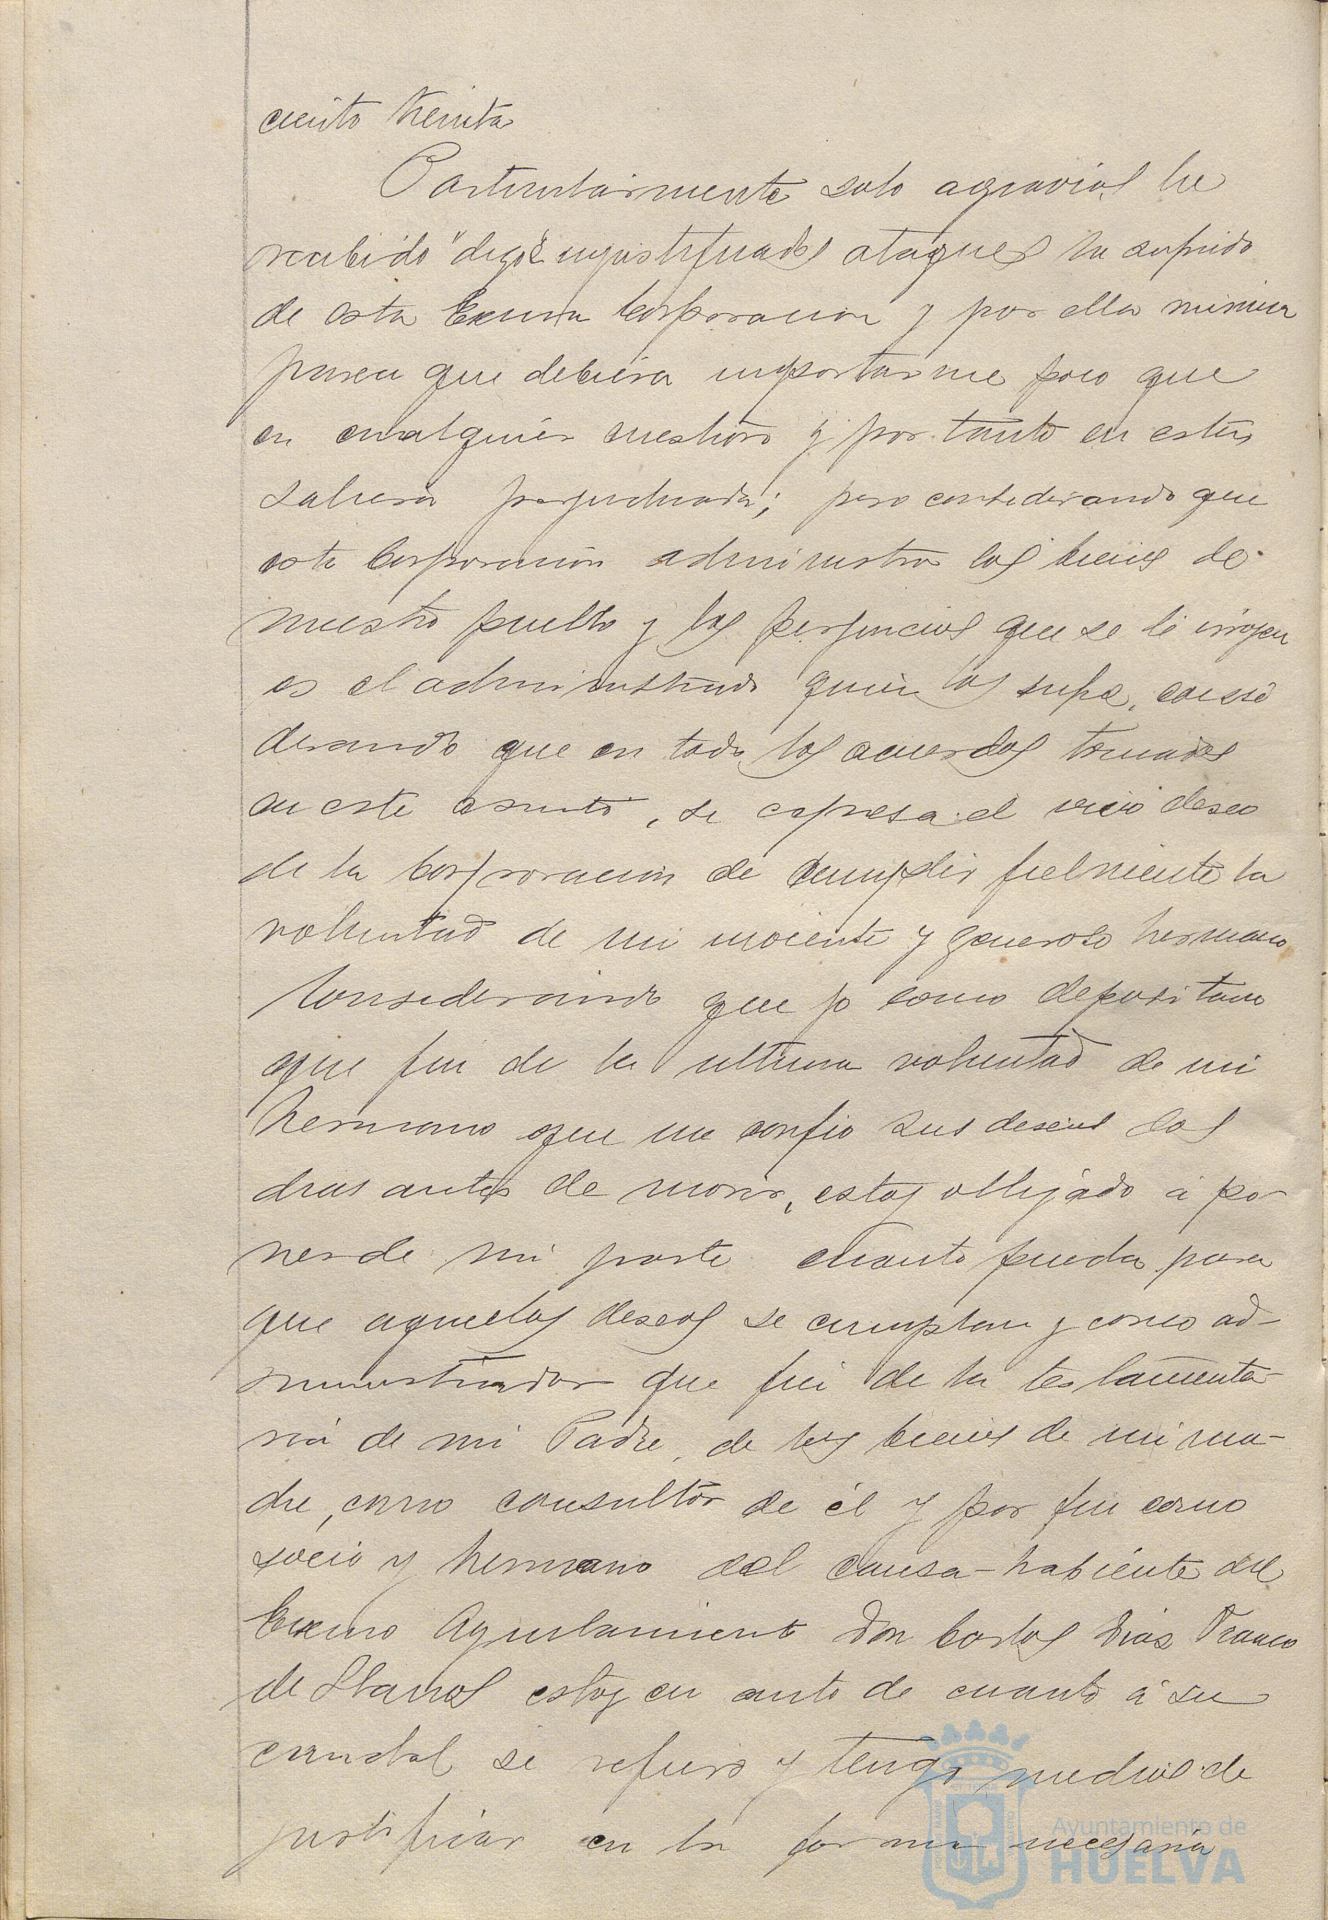 ciento treinta
Particularmente solo agravios he
recibido "digo" injustificados ataques he sufrido
de esta Excma Corporacion y por ello
parece que debiera importarme poco que
en cualquier cuestion y por tanto en esta
saliera perjudicada; pero considerando que
esta Corporación administra los bienes de
nuestro pueblo y los perjuicios que se le irrogen
es el administrado quien los sufre, consi
derando que en todos los acuerdos tomados
en este asunto, se expresa el vivo deseo
de la Corporacion de cumplir fielmente la
voluntad de mi inocente y generoso hermano
Considerando que yo como depositario
que fui de la ultima voluntad de mi
hermano que me confio sus deseos dos
dias antes de morir, estoy obligado á po-
ner de mi parte cuanto pueda para
que aquellos deseos se cumplan y como ad-
ministrador que fui de la testamenta-
ria de mi Padre, de los bienes de mi ma-
dre, como consultor de él y por fin como
socio y hermano del causa-habiente del
Excmo Ayuntamiento Don Carlos Diaz Franco
de Llanos estoy en auto de cuanto á su
caudal se refiere y tengo medios de
justificar en la forma necesaria
Ayuntamiento de
HUELVA